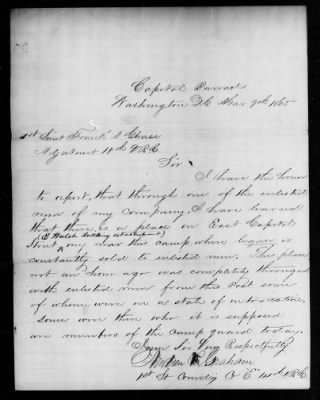 Capitol Barracks
Washington D.C. Mar 9th 1865
1st Lieut Frank A Chase
Adjutant 14th V.R.C.
Sir
I have the honor
to report, that through one of the enlisted
men of my company, I have learned
that there is a place on East Capitol
(E Walsh
Street, near this camp where liquor is
constantly sold to enlisted men. This place
not an hour ago was completely thronged
with enlisted men from this Post some
of whom were in a state of intoxication.
Some were then who it is supposed
are members of the camp guard to-day.
I am Sir Very Respectfully
Graham
1st Lt Comdg Co "E" 14th V.R.C.